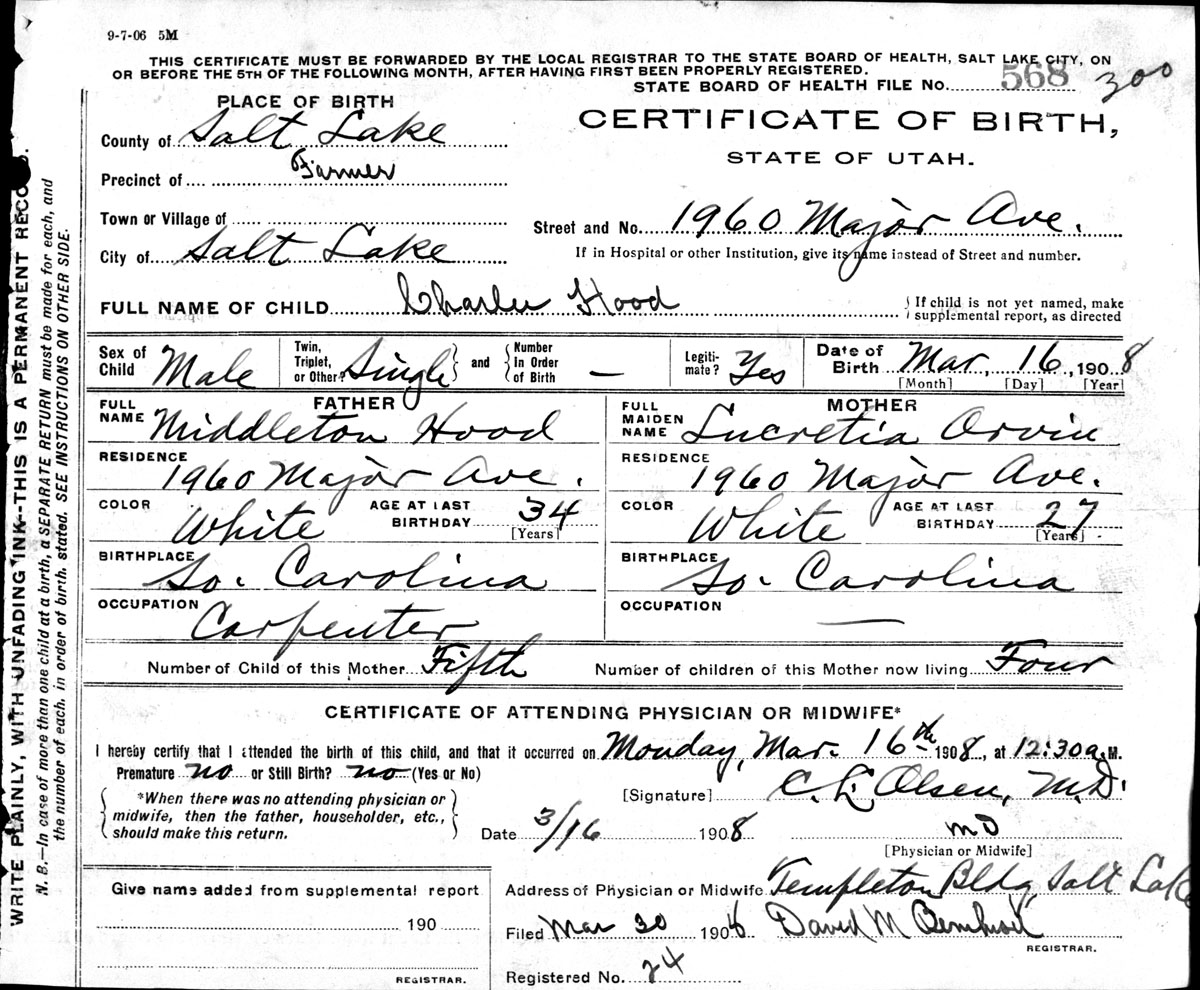 9-7-06 5M
THIS CERTIFICATE MUST BE FORWARDED BY THE LOCAL REGISTRAR TO THE STATE BOARD OF HEALTH, SALT LAKE CITY, ON
OR BEFORE THE 5TH OF THE FOLLOWING MONTH, AFTER HAVING FIRST BEEN PROPERLY REGISTERED.
STATE BOARD OF HEALTH FILE No. 568 300
PLACE OF BIRTH
CERTIFICATE OF BIRTH,
STATE OF UTAH.
County of Salt Lake
Precinct of Farmer
Town or Village of
Street and No. 1960 Major Ave.
City of Salt Lake
If in Hospital or other Institution, give its name instead of Street and number.
FULL NAME OF CHILD Charles Hood
If child is not yet named, make
supplemental report, as directed
Sex of Child Male Twin, Triplet, or Other? Single and Number In Order of Birth — Legiti-mate? Yes Date of Birth Mar. 16, 1908
[Month] [Day] [Year]
FATHER MOTHER
FULL NAME Middleton Hood FULL MAIDEN NAME Lucretia Orvin
RESIDENCE 1960 Major Ave. RESIDENCE 1960 Major Ave.
COLOR White AGE AT LAST BIRTHDAY 34 [Years] COLOR White AGE AT LAST BIRTHDAY 27 [Years]
BIRTHPLACE So. Carolina BIRTHPLACE So. Carolina
OCCUPATION Carpenter OCCUPATION —
Number of Child of this Mother Fifth Number of children of this Mother now living Four
CERTIFICATE OF ATTENDING PHYSICIAN OR MIDWIFE*
I hereby certify that I attended the birth of this child, and that it occurred on Monday, Mar. 16th 1908, at 12:30 a.M.
Premature no or Still Birth? no (Yes or No)
*When there was no attending physician or
midwife, then the father, householder, etc.,
should make this return.
[Signature] C. L. Olsen, M.D.
Date 3/16 1908 MD
[Physician or Midwife]
Give name added from supplemental report
190
REGISTRAR.
Address of Physician or Midwife Templeton Bldg, Salt Lake
Filed Mar 30 1908 David M
REGISTRAR.
Registered No. 24
WRITE PLAINLY, WITH UNFADING INK--THIS IS A PERMANENT RECORD.
N. B.—In case of more than one child at a birth, a SEPARATE RETURN must be made for each, and
the number of each, in order of birth, stated. SEE INSTRUCTIONS ON OTHER SIDE.